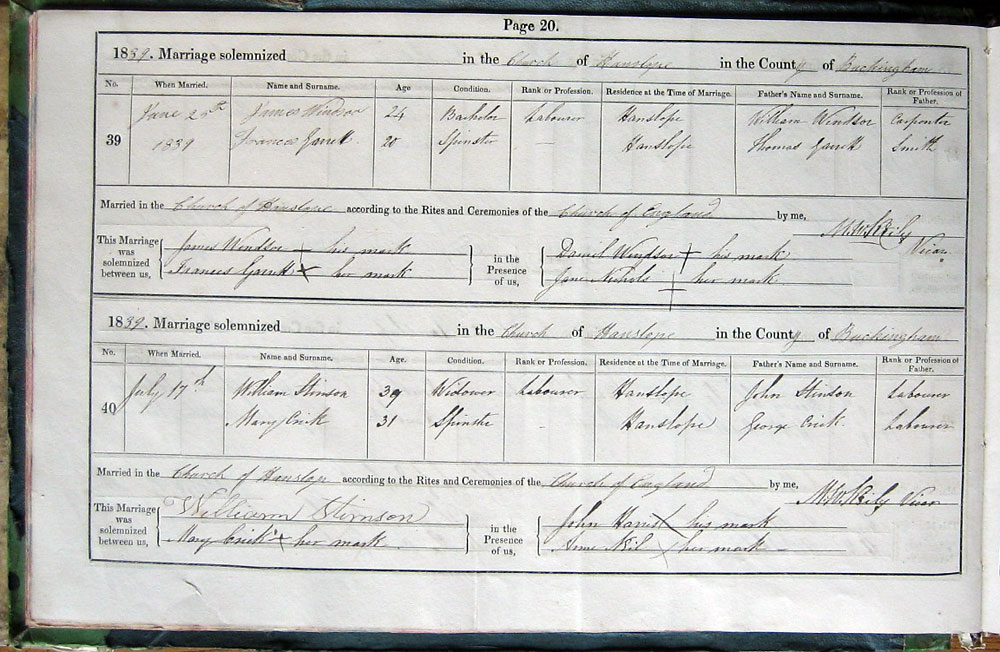 Page 20.
1839. Marriage solemnized in the Church of Hanslope in the County of Buckingham
No. When Married. Name and Surname. Age Condition. Rank or Profession. Residence at the Time of Marriage. Father's Name and Surname. Rank or Profession of Father.
39 June 25th James Windsor 24 Bachelor Labourer Hanslope William Windsor Carpenter
1839 Frances Garrett 20 Spinster — Hanslope Thomas Garrett Smith
Married in the Church of Hanslope according to the Rites and Ceremonies of the Church of England by me,
Vicar.
This Marriage was solemnized between us,
James Windsor + his mark
Frances Garrett x her mark
in the Presence of us,
Daniel Windsor + his mark
Jane Nichols + her mark
1839. Marriage solemnized in the Church of Hanslope in the County of Buckingham
No. When Married. Name and Surname. Age. Condition. Rank or Profession. Residence at the Time of Marriage. Father's Name and Surname. Rank or Profession of Father.
40 July 17th William Stimson 39 Widower Labourer Hanslope John Stimson Labourer
Mary Crick 31 Spinster - Hanslope George Crick. Labourer
Married in the Church of Hanslope according to the Rites and Ceremonies of the Church of England by me,
Vicar
This Marriage was solemnized between us,
William Stimson
Mary Crick x her mark
in the Presence of us,
John Harris x his mark
Anne x her mark